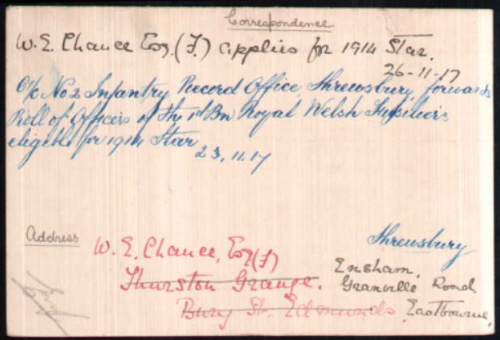 Correspondence
W. E. Chance Esq. (F.) applies for 1914 Star.
26-11-17
O/c No 2 Infantry Record Office, Shrewsbury, forwards
Roll of Officers of the 1st Bn Royal Welsh Fusiliers
eligible for 1914 Star
23.11.17
Address
Shrewsbury
W. E. Chance, Esq (F)
Thurston Grange.
Bury St. Edmunds
Ensham,
Granville Road
Eastbourne